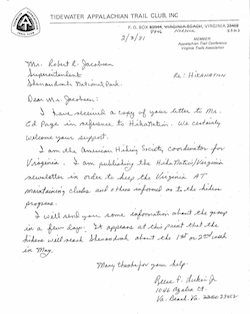 TIDEWATER APPALACHIAN TRAIL CLUB, INC
P. O. BOX
NORFOLK
MEMBER
Appalachian Trail Conference
Virginia Trails Association
2/9/81
Mr. Robert R. Jacobsen
Superintendent
Shenandoah National Park
Re: HIKANATION
Dear Mr. Jacobsen:
I have received a copy of your letter to Mr.
Ed Page in reference to HikaNation. We certainly
welcome your support.
I am the American Hiking Society coordinator for
Virginia. I am publishing the HikaNation/Virginia
newsletter in order to keep the Virginia AT
maintaining clubs and others informed as to the hikers
progress.
I will send you some information about the group
in a few days. It appears at this point that the
hikers will reach Shenandoah about the 1st or 2nd week
in May.
Many thanks for your help.
Reese F.
1046 Azalea Ct.
Va. Beach, Va.